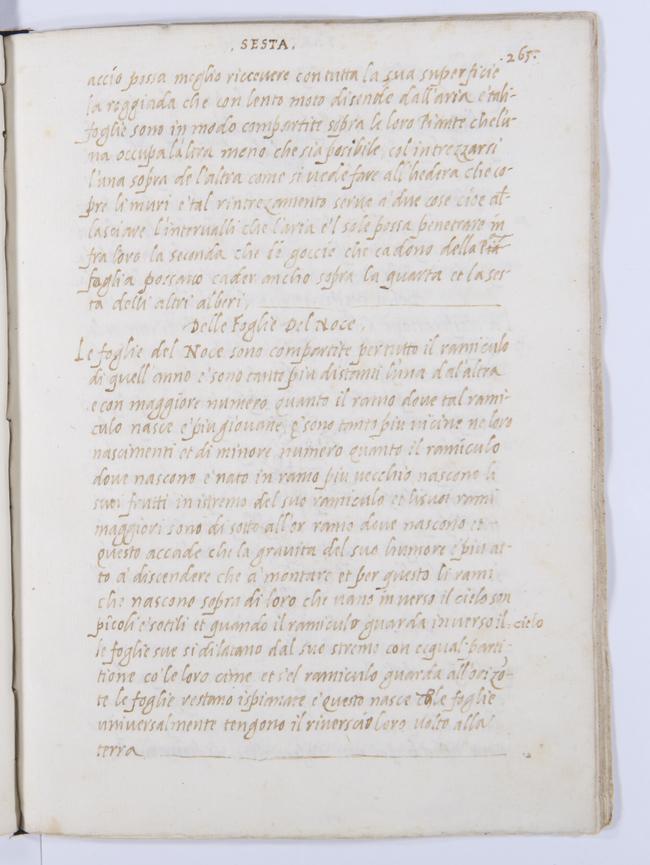 . SESTA .
. 265.
accio possa meglio riccevere con tutta la sua superficie
la roggiada che con lento moto disende dall'aria e tali-
foglie sono in modo compartite sopra le loro Piante che lu-
na occupa la'ltra meno che sia posibile, col intrezzarsi
l'una sopra de l'altra come si vede fare all'hedera che co-
pre li muri e tal rintrezamento serve a due cose cioe al-
lasciare l'intervalli che l'aria e'l sole possa penetrare in
fra loro la seconda che le goccie che cadono della
foglia possano cader ancho sopra la quarta et la ses-
ta delli altri alberi,
Delle Foglie Del Noce.
Le foglie del Noce sono compartite per tutto il ramiculo
di quell'anno e sono tanto piu distanti l'una dal'altra
e con maggiore numero quanto il ramo dove tal rami-
culo nasce e piu giovane, e sono tanto piu vicine ne loro
nascimenti et di minore numero quanto il ramiculo
dove nascono e nato in ramo piu vecchio nascono li
suoi frutti in istremo del suo ramiculo et li suoi rami
maggiori sono di sotto allor ramo dove nascono et
questo accade che la gravita del suo humore e piu at-
to a discendere che a montare et per questo li rami
che nascono sopra di loro che vano inverso il cielo son
picoli e sotili et quando il ramiculo guarda inverso il cielo
le foglie sue si dilatano dal suo stremo con ecqual parti-
tione co le loro cime et s'el ramiculo guarda all'orizo-
te le foglie restano ispianate e questo nasce che le foglie
universalmente tengono il riverscio loro volto alla
terra